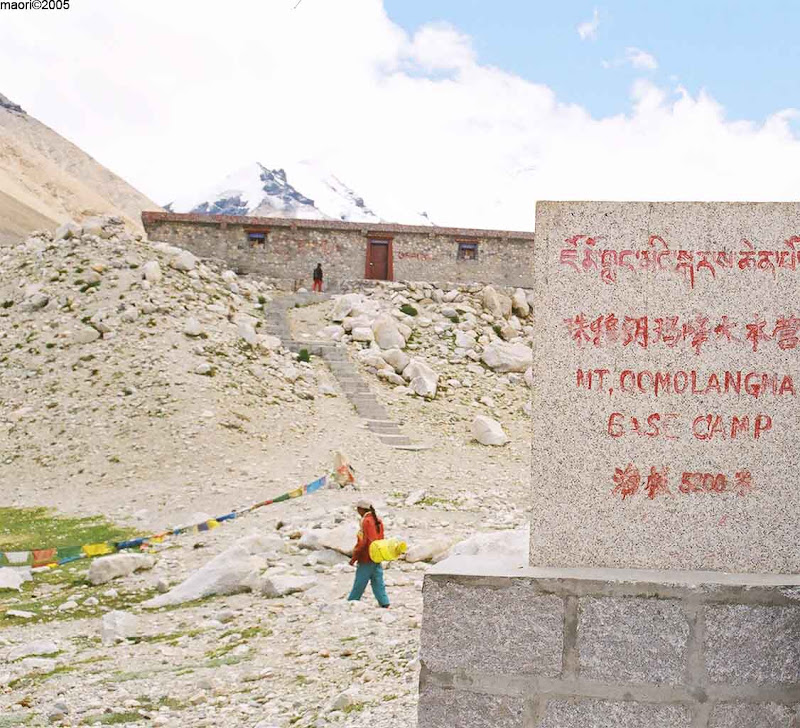 maori©2005
ཇོ་མོ་གླང་མའི་
珠穆朗玛峰大本营
MT. QOMOLANGMA
BASE CAMP
海拔 5200 米